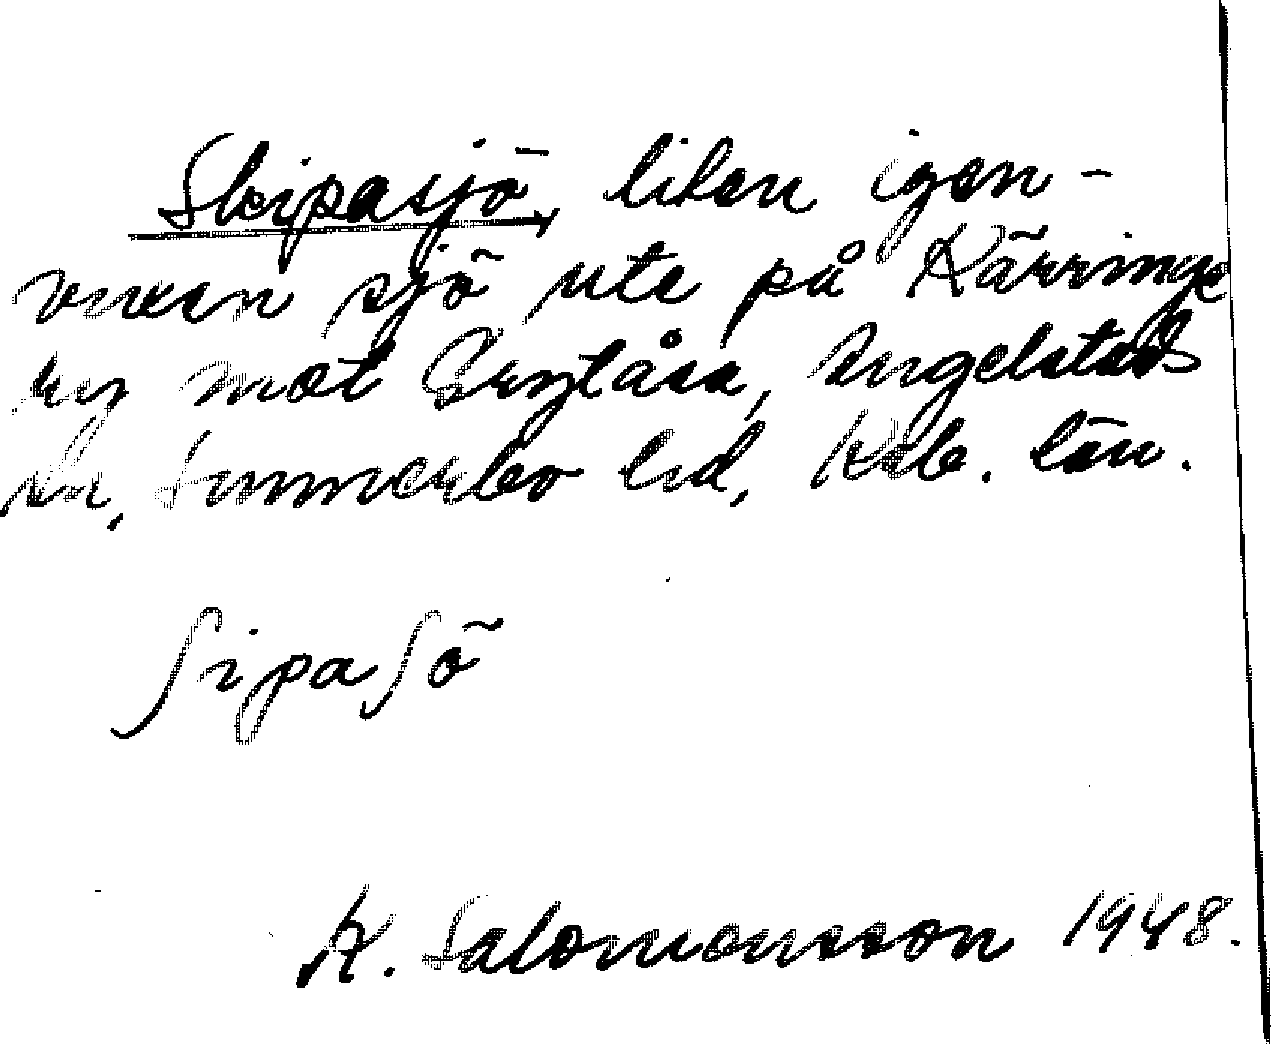 Skipasjö, liten igen-
vuxen sjö ute på Kärringe
mot Grytåsa, Angelstads
sn, Sunnerbo hd, Krb. län.
ſipaſö
K. Salomonsson 1948.